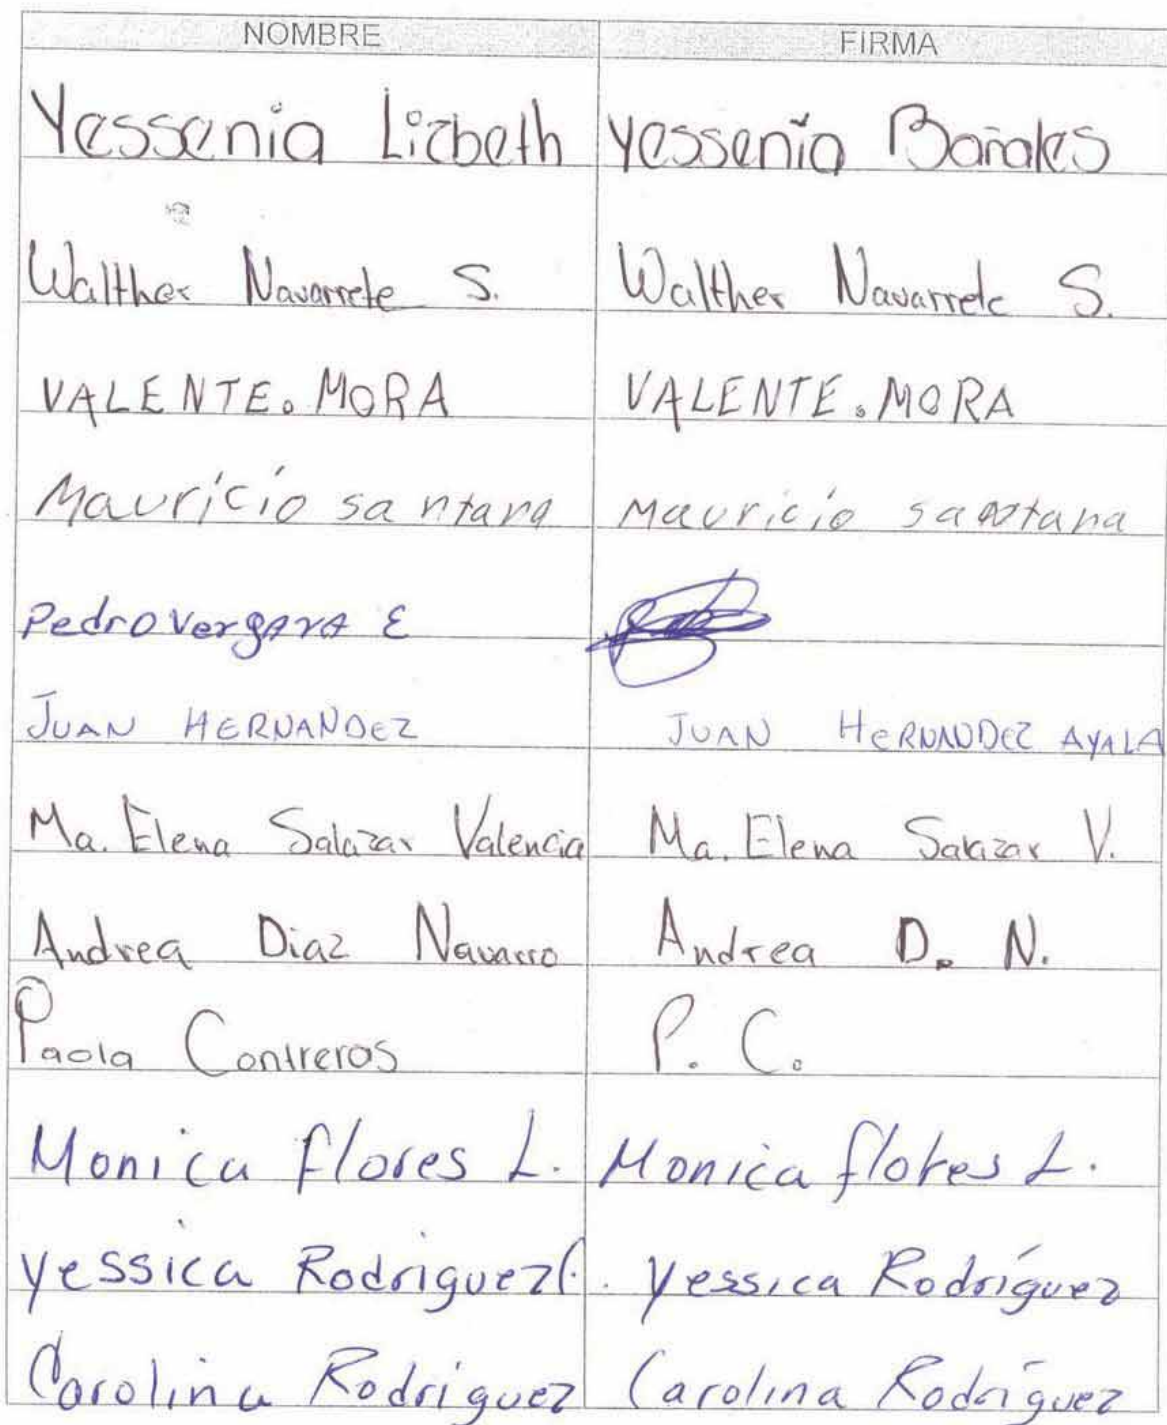 NOMBRE FIRMA
Yessenia Lizbeth Yessenia Bañales
Walther Navarrete S. Walther Navarrete S.
VALENTE. MORA VALENTE. MORA
Mauricio santana Mauricio santana
Pedro Vergara E
JUAN HERNANDEZ JUAN HERNANDEZ AYALA
Ma. Elena Salazar Valencia Ma. Elena Salazar V.
Andrea Diaz Navarro Andrea D. N.
Paola Contreras P. C.
Monica flores L. Monica flores L.
Yessica Rodriguez C. Yessica Rodríguez
Carolina Rodriguez Carolina Rodríguez